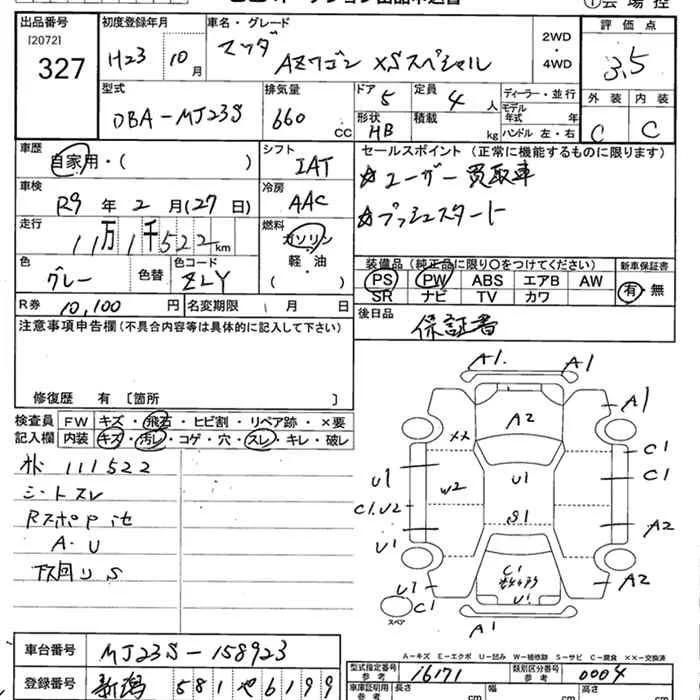 出品番号 [2072] 327
初度登録年月 H23 10月
車名・グレード マツダ AZワゴン XSスペシャル
2WD・4WD
評価点 3.5
外装 C 内装 C
型式 DBA-MJ23S
排気量 660 CC
ドア 5
形状 HB
定員 4人
積載 kg
ディーラー・並行
モデル年式 年
ハンドル 左・右
車歴 自家用・( )
シフト IAT
車検 R9年2月(27日)
冷房 AAC
走行 11万1千522km
燃料 ガソリン・軽・油 ( )
色 グレー 色替
色コード ZLY
R券 10,100円
名変期限 月 日
セールスポイント(正常に機能するものに限ります)
☆ユーザー買取車
☆プッシュスタート
装備品(純正品に限り○をつけてください)
PS PW ABS エアB AW
SR ナビ TV カワ
新車保証書 有・無
後日品 保証書
注意事項申告欄(不具合内容等は具体的に記入して下さい)
修復歴 有 [箇所 ]
検査員記入欄
FW キズ・飛石・ヒビ割・リペア跡・×要
内装 キズ・汚レ・コゲ・穴・スレ・キレ・破レ
111522
シートスレ
A・U
下回りS
A1. A1
A1
A2
××
C1
U1 U1 C1
W2
C1.U2
S1
U1 A2
C1
U1
U1 A2
C1
スペア
A1
A-キズ E-エクボ U-凹み W-補修跡 S-サビ C-腐食 ××-交換済
車台番号 MJ23S-158923
登録番号 新潟 581 や 6199
型式指定番号 参考 16171
類別区分番号 参考 0004
車庫証明用 参考 長さ cm 幅 cm 高さ cm